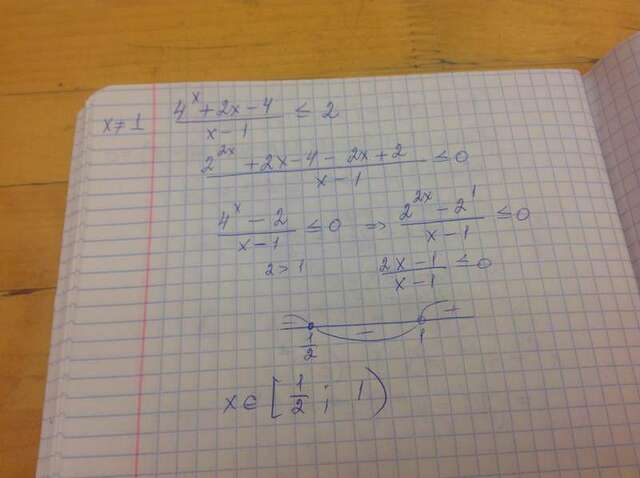 x≠1 (4^x + 2x - 4)/(x - 1) ≤ 2
(2^(2x) + 2x - 4 - 2x + 2)/(x - 1) ≤ 0
(4^x - 2)/(x - 1) ≤ 0 => (2^(2x) - 2^1)/(x - 1) ≤ 0
2 > 1 (2x - 1)/(x - 1) ≤ 0
- +
1/2 1
x ∈ [1/2 ; 1)